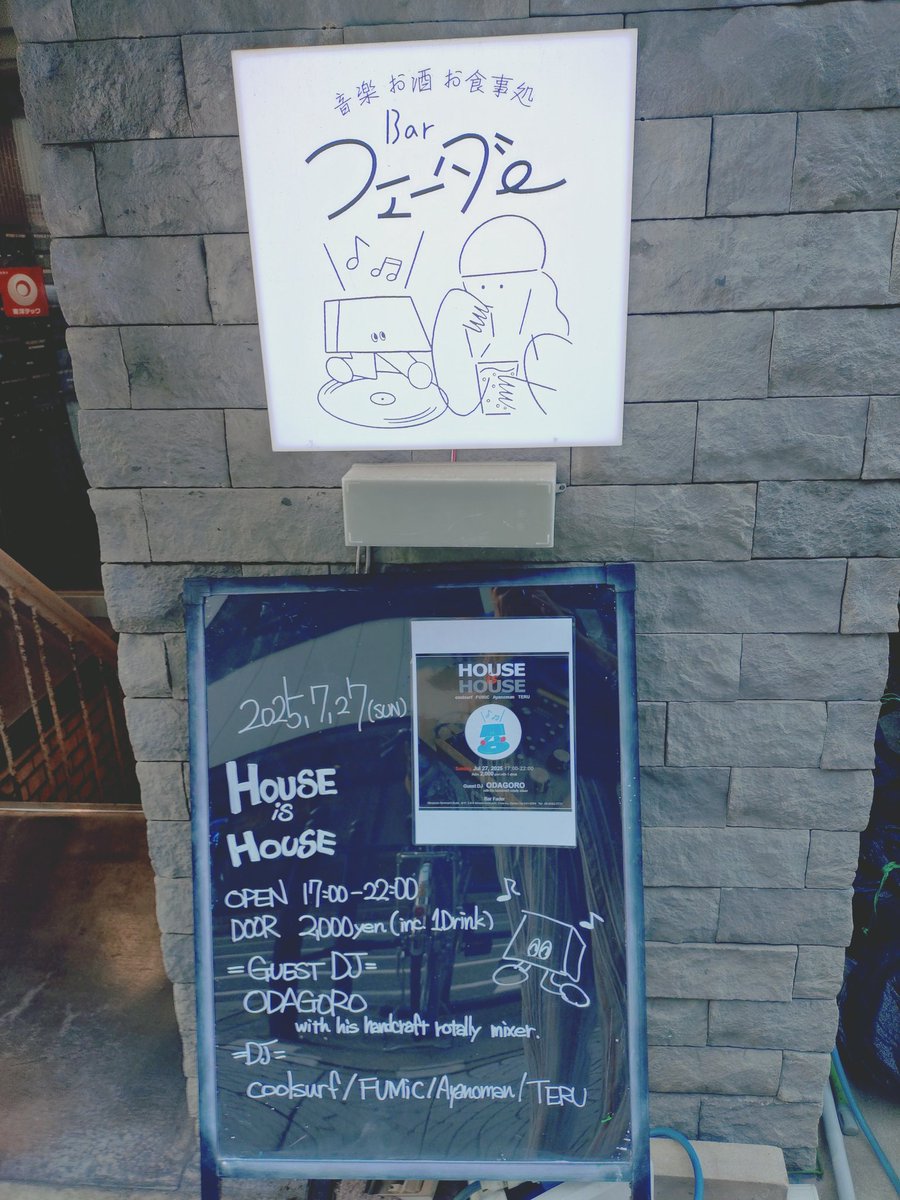 音楽 お酒 お食事処
Bar
フェーダe
2025,7,27(SUN)
HOUSE
is
HOUSE
OPEN 17:00-22:00
DOOR 2,000yen.(inc.1Drink)
=GUEST DJ=
ODAGORO
with his handcraft rotally mixer.
=DJ=
coolsurf/FUMiC/Ayanoman/TERU
HOUSE
HOUSE
coolsurf FUMiC Ayanoman TERU
Sunday Jul 27, 2025 17:00-22:00
Guest DJ ODAGORO
Bar Fader